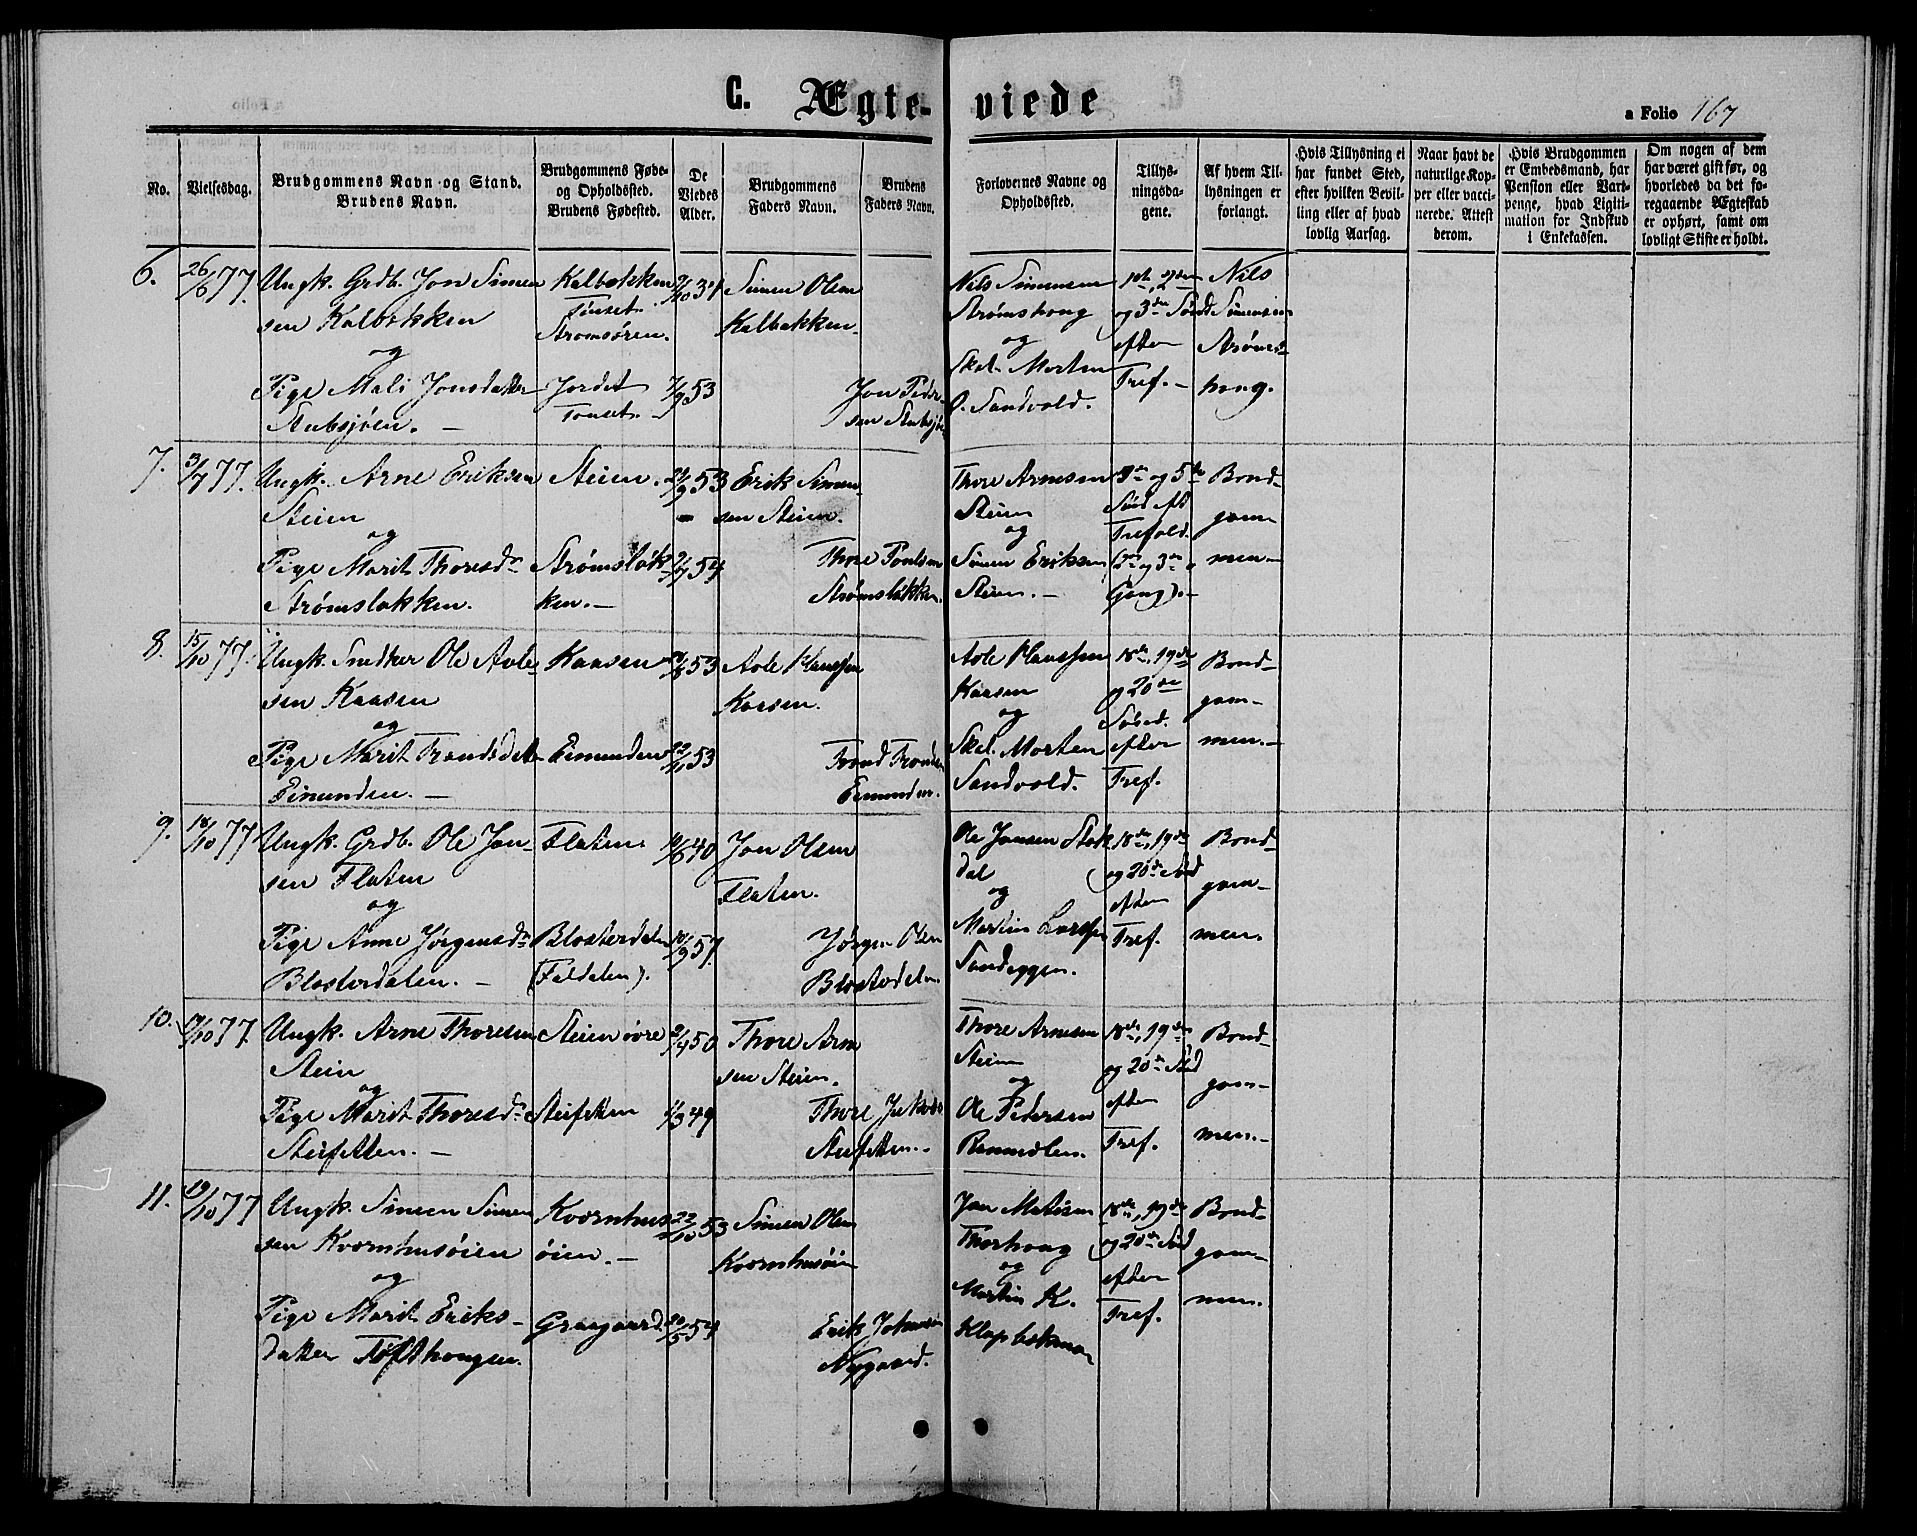 C. Ægte-viede
a Folio 167
No.
Vielsesdag.
Brudgommens Navn og Stand.
Brudens Navn.
Brudgommens Føde-
og Opholdssted.
Brudens Fødested.
De
Viedes
Alder.
Brudgommens
Faders Navn.
Brudens
Faders Navn.
Forlovernes Navne og
Opholdssted.
Tillys-
ningsda-
gene.
Af hvem Til-
lysningen er
forlangt.
Hvis Tillysning ei
har fundet Sted,
efter hvilken Bevil-
ling eller af hvad
lovlig Aarsag.
Naar havt de
naturlige Kop-
per eller vacci-
nerede. Attest
derom.
Hvis Brudgommen
er Embedsmand, har
Pension eller Vart-
penge, hvad Ligiti-
mation for Indskud
i Enkekassen.
Om nogen af dem
har været gift før, og
hvorledes da det fo-
regaaende Ægteskab
er ophørt, samt om
lovligt Skifte er holdt.
6. 26/6 77.
Ungk. Grdb. Jon Simen
sen Kalbækken
og
Pige Mali Jonsdatter
Stubsjøen. —
Kalbækken
Tønset.
Strømsøren.
Jordet
Tønset. —
9/10 37
7/9 53
Simen Olsen
Kalbækken.
Jon Peder-
sen Stubsjø
Nils Simensen
Strømshoug
og
Skol. Morten
O. Sandvold.
1ste, 2den
og 3de Sønd
efter
Tref. —
Nils
Simensen
Strøms-
houg.
7. 3/7 77.
Ungk. Arne Eriksen
Steien
og
Pige Marit Thoresdr
Strømsløkken.
Steien.
Strømsløk-
ken. —
24/9 53
2/7 54
Erik Simen-
sen Steien.
Thore Poulsen
Strømsløkken.
Thore Arnesen
Steien
og
Simen Eriksen
Steien. —
og 5te
Sønd eft
Trefold.
(2den og 3die
Gang). —
Bond-
gom
men —
8. 15/10 77.
Ungk. Snedker Ole Aole-
sen Kaasen
og
Pige Marit Trondsdatr
Eimunden. —
Kaasen
Eimunden
53
22/11 53
Aole Hanssen
Kaasen.
Trond Trondsen
Eimunden.
Aole Hanssen
Kaasen
og
Skol. Morten
Sandvold.
18de, 19de
og 20de
Sønd.
efter
Tref.
Bond-
gom-
men. —
9. 18/10 77
Ungk. Grdb. Ole Jon-
sen Flaten
og
Pige Anne Jørgensdr
Blosterdalen. —
Flaten.
Blosterdalen
(Foldalen).
10/6 40
10/9 57.
Jon Olsen
Flaten.
Jørgen Olsen
Blosterdalen
Ole Jonsen Stok
dal
og
Morten Larssen
Sandeggen.
18de, 19de
og 20de Sønd
efter
Tref.
Bond-
gom-
men.
10. 19/10 77.
Ungk. Arne Thoresen
Steien
og
Pige Marit Thoresdr
Steifetten. —
Steien øvre
Steifetten
2/4 50
1/3 49
Thore Arne
sen Steien.
Thore Jakobs
Steifetten. -
Thore Arnesen
Steien
og
Ole Pedersen
18de, 19de
og 20de Sønd
efter
Tref.
Bond-
gom-
men. —
11. 19/10 77
Ungk. Simen Simen
sen Kvernhusøien
og
Pige Marit Eriks-
datter Tofthougen.
Kvernhus
øien. —
Graagaard
22/10 53
20/5 54
Simen Olsen
Kvernhusøien
Erik Johnsen
Nygaard.
Jon Matisen
Thorhoug
og
Martin K.
Klopbakmoe
18de, 19de
og 20de Sønd
efter
Tref.
Bond-
gom-
men.